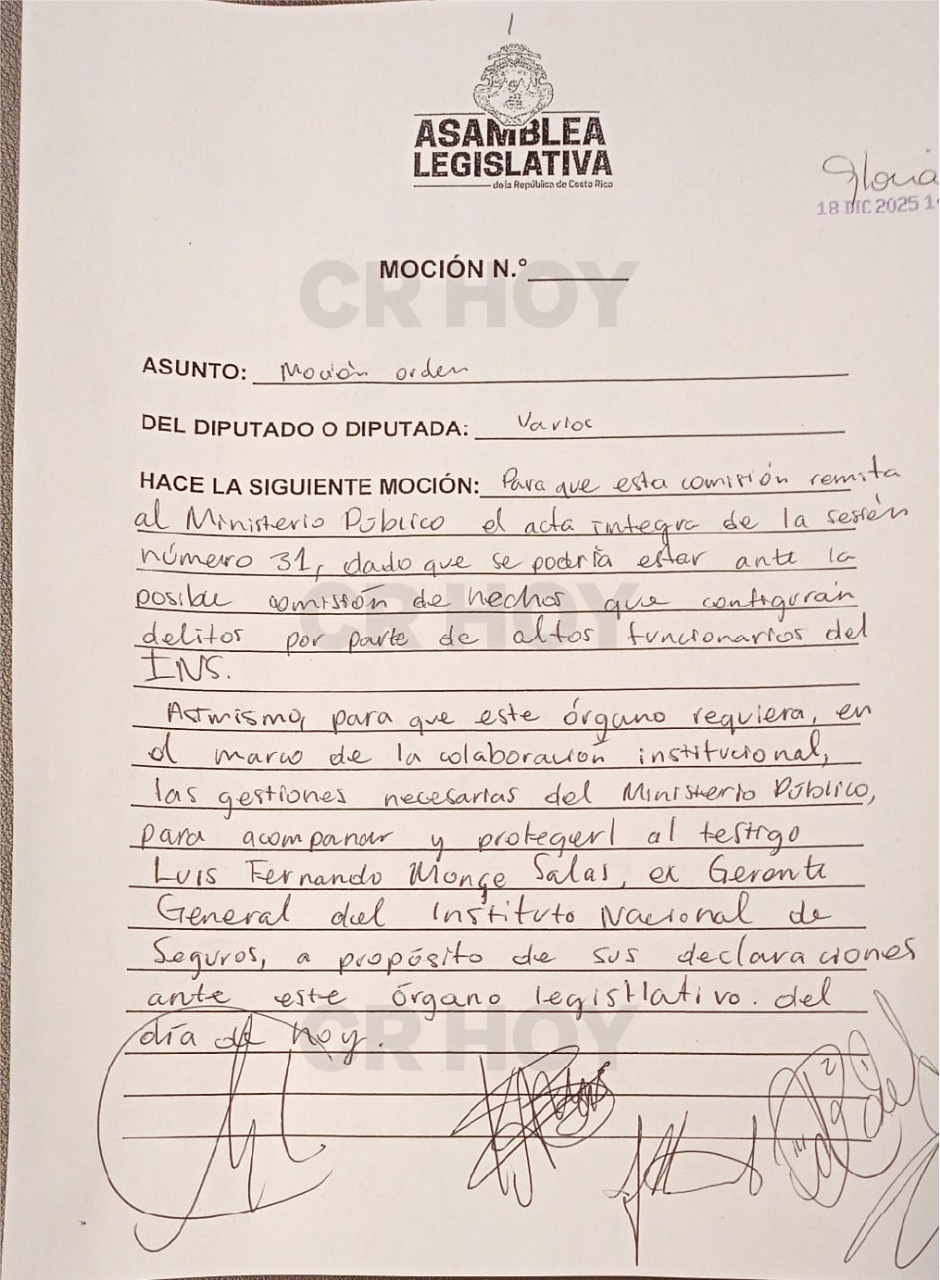 ASAMBLEA
LEGISLATIVA
de la República de Costa Rica
Gloria
18 DIC 2025 1
MOCIÓN N.°
CR HOY
ASUNTO: Moción orden
DEL DIPUTADO O DIPUTADA: Varios
HACE LA SIGUIENTE MOCIÓN: Para que esta comisión remita
al Ministerio Público el acta integra de la sesión
número 31, dado que se podría estar ante la
posible comisión de hechos que configuran
CR HOY
delitos por parte de altos funcionarios del
INS.
Asimismo, para que este órgano requiera, en
el marco de la colaboración institucional,
las gestiones necesarias del Ministerio Público,
para acompanar y protegerl al testigo
Luis Fernando Monge Salas, ex Gerente
General del Instituto Nacional de
Seguros, a propósito de sus declaraciones
ante este órgano legistlativo. del
día de hoy.
CR HOY